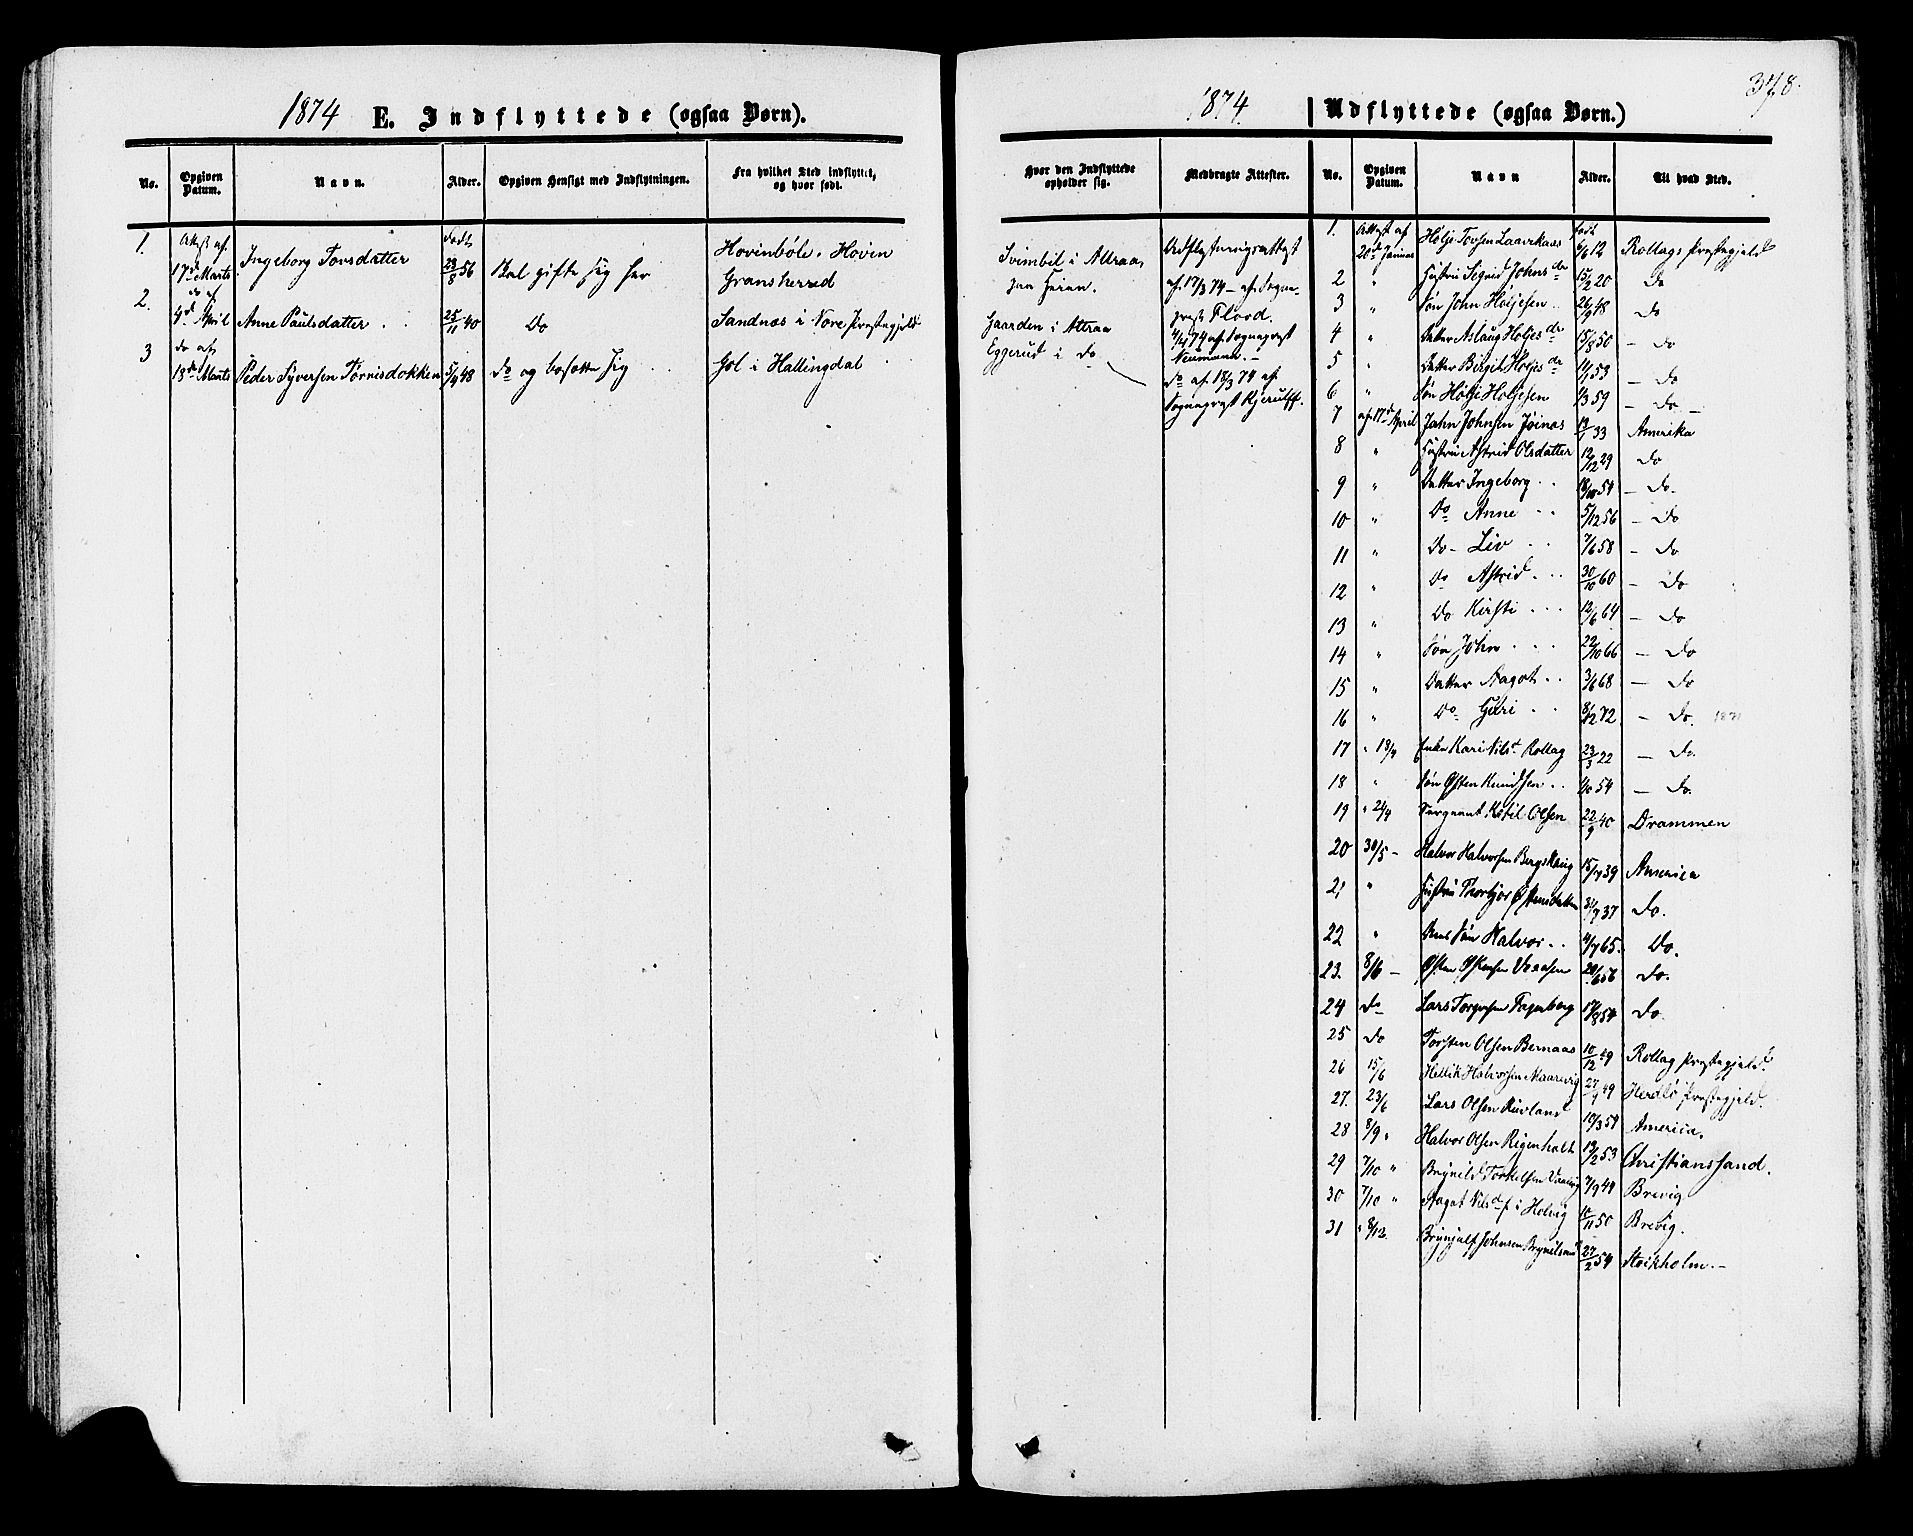 1874 E. Indflyttede (ogsaa Børn).
No. Opgiven Datum. Navn. Alder. Opgiven Hensigt med Indflytningen. Fra hvilket Sted indflyttet, og hvor født.
1. Attest af 17de Marts Ingeborg Torsdatter født 23/8 56 Skal gifte sig her Hovinbøle, Hovin Gransherred
2. do af 4d April Anne Paulsdatter 25/11 40 Do Sandnæs i Nore Præstegjeld
3 do af 18de Marts Peder Syversen Tørrisdokken 5/4 48 do og bosætte sig Gol i Hallingdal
378.
1874. Udflyttede (ogsaa Børn.)
Hvor den Indflyttede opholder sig. Medbragte Attester. No. Opgiven Datum. Navn Alder. Til hvad Sted.
Svimbil i Attraa
paa Heien.
Gaarden i Attraa
Eggerud i do
Udflytningsattest
af 17/3 74 – af Sogne-
prest Flood.
4/4 74 af Sogneprest
Neumann. –
do af 18/3 74 af
Sogneprest Kjerulff.
1. Attest af 20de Januar Høljе Torsen Laavekaas født 6/6 12 Rollags Præstegjeld
2 " Hustru Sigrid Johnsdr 15/2 20 Do
3 " Søn John Høljesen 26/9 48 Do
4 " Datter Aslaug Høljesdr 15/8 50 – Do
5 " Datter Birgit Høljesdr 14/1 53 – Do
6 " Søn Hølje Høljesen 1/3 59 – Do –
7 af 17d April John Johnsen Jøinæs 13/1 33 Amerika
8 " Hustru Astrid Olsdatter 12/12 29 Do
9 " Datter Ingeborg 18/10 54 – Do.
10 " Do Anne 5/12 56 – Do
11 " Do – Liv 7/6 58 – Do
12 " Do Astrid 30/10 60 – Do
13 " Do Kirsti 12/6 64 – Do
14 " Søn John 22/10 66 – Do
15 " Datter Aagot 3/6 68 – Do
16 " Do Guri 8/12 72 – Do.
17 " 18/4 Enke Kari Nilsd. Rollag 23/3 22 – Do.
18 " Søn Østen Knudsen 1/10 54 – Do.
19 " 24/4 Sergeant Kittil Olsen 22/9 40 Drammen
20 30/5 – Halvor Halvorsen Bergshaug 15/7 39 America
21 " Hustru Thorbjør Østensdatter 31/7 37 Do.
22 " Søn Halvor 4/7 65. Do.
23. 8/6 – Østen Østensen 20/6 56 Do.
24 do Lars Torgersen Fagerberg 17/8 54 Do.
25 Do Torsten Olsen Bernaas 10/12 49 Rollag Præstegjeld.
26 15/6 Hellik Halvorsen Maarvig 27/9 49 Herdlø Præstegjeld.
27. 23/6 Lars Olsen Ruvland 10/3 54 America.
28 8/9 " Halvor Olsen Rigenholt 19/2 53 Christianssand.
29 7/10 " Brynild Torkelsen 7/9 44 Brevig
30 7/10 " Aagot Nilsd. i Helvig 10/11 50 Brevig.
31 " 8/12. Brynjulf Johnsen 27/2 54 Stokholm. –